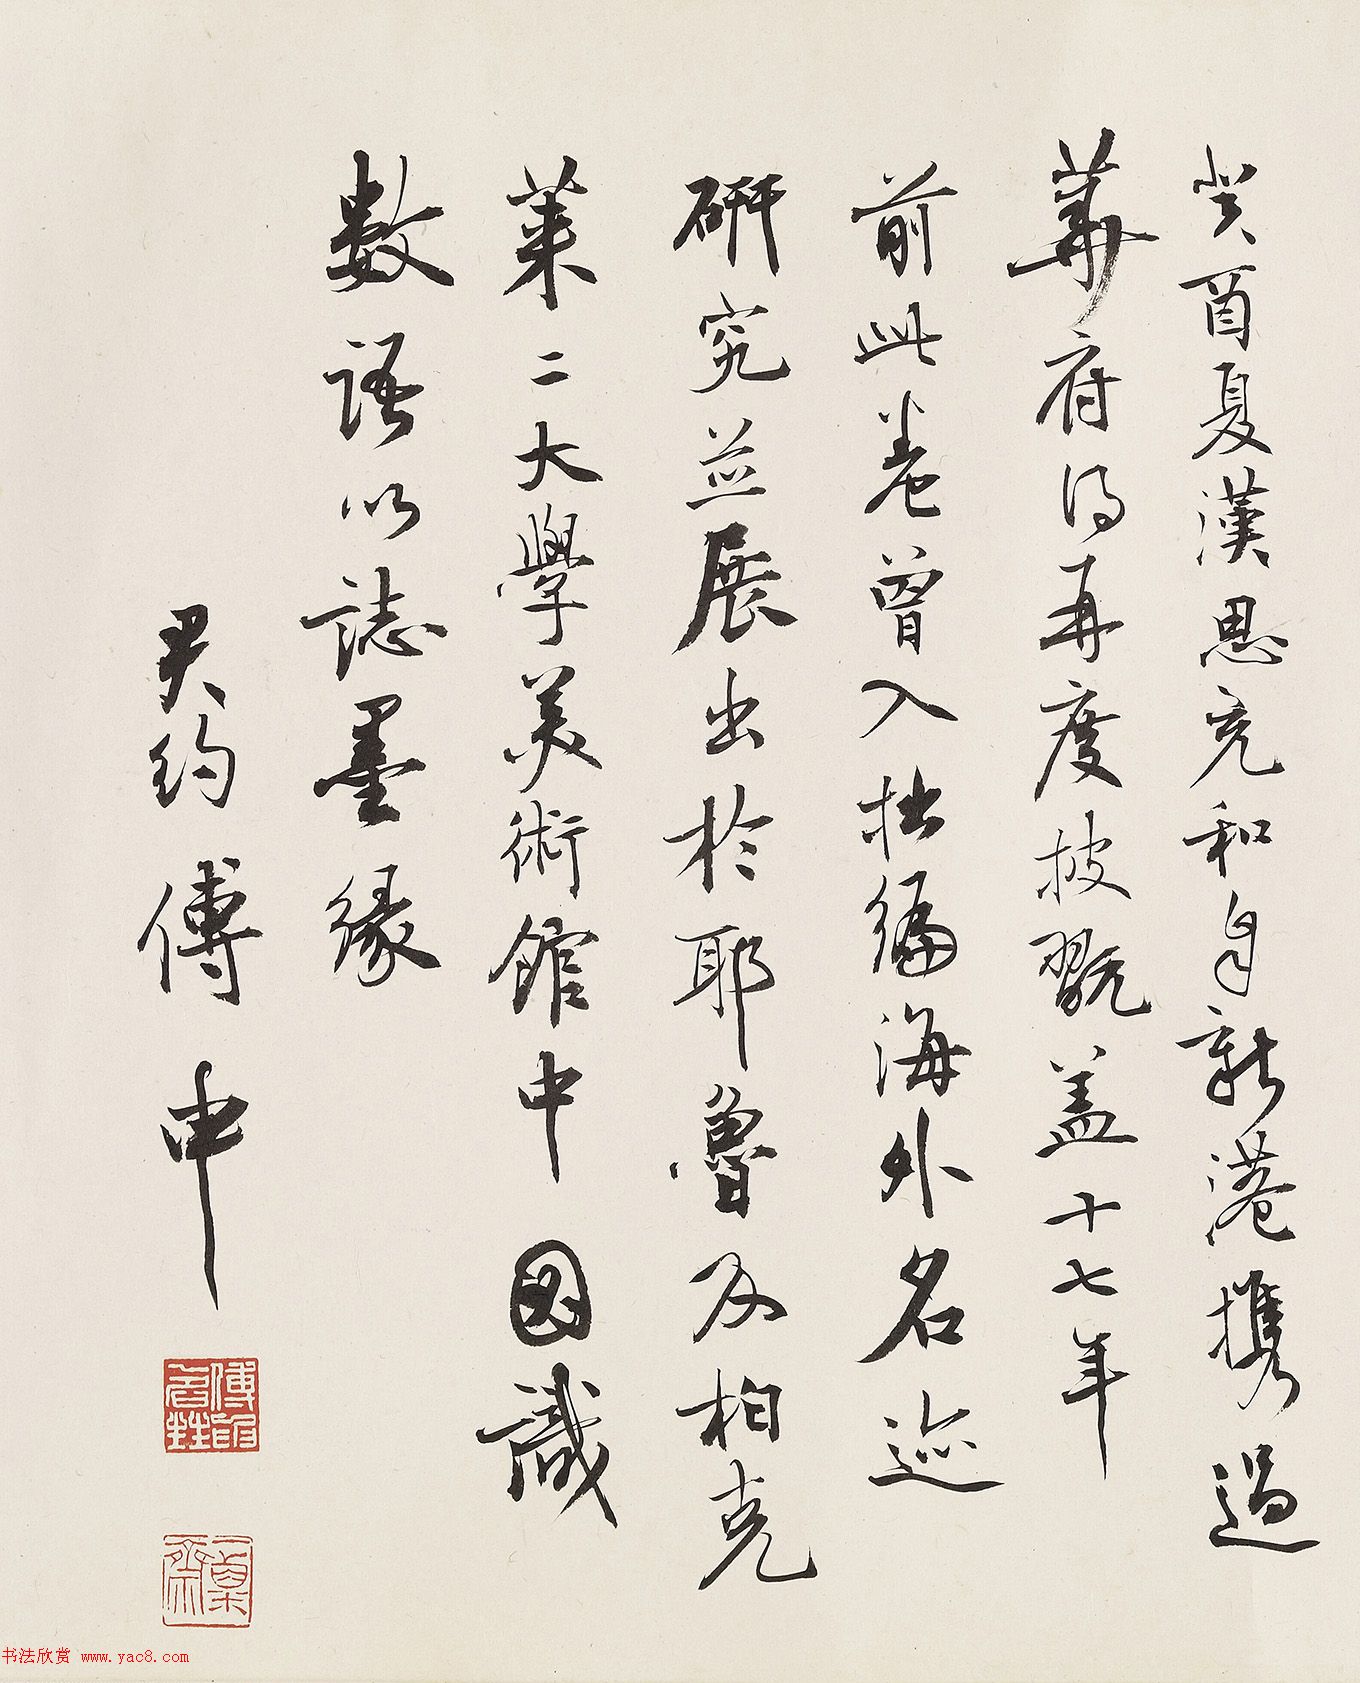 癸酉夏漢思充和自新港攜過
華府得再度披翫蓋十七年
前此卷曾入拙編海外名迹
研究並展出於耶魯及柏克
萊二大學美術館中因識
數語以誌墨緣
君約傅申
書法欣赏 www.yac8.com